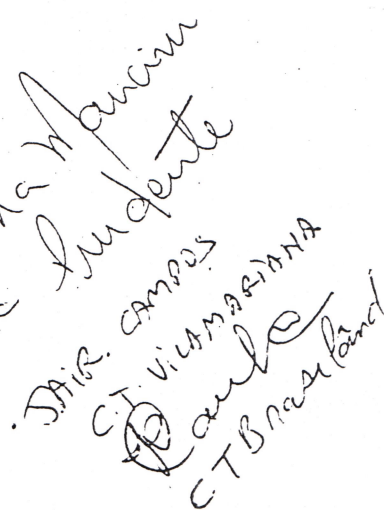 na Mancini
Prudente
. JAIR. CAMPOS
C.T. VILAMARIANA
CT Brasilând